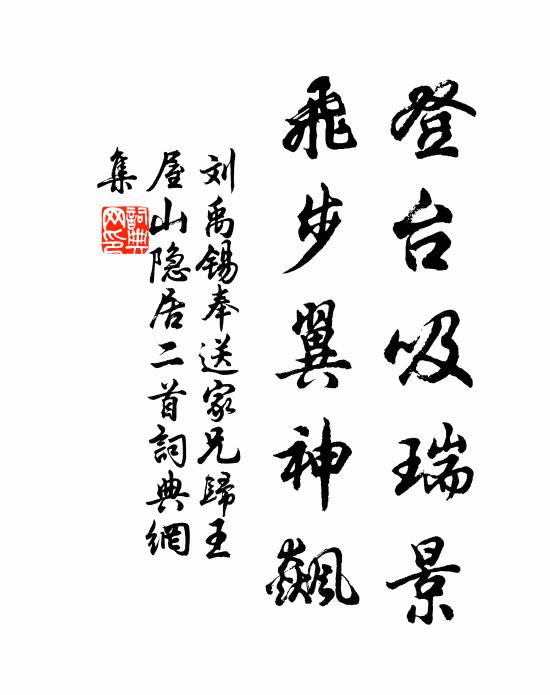 登台吸瑞景
飛步翼神飆
刘禹锡奉送家兄歸王
屋山隐居二首詞典網
集
詞典
网印